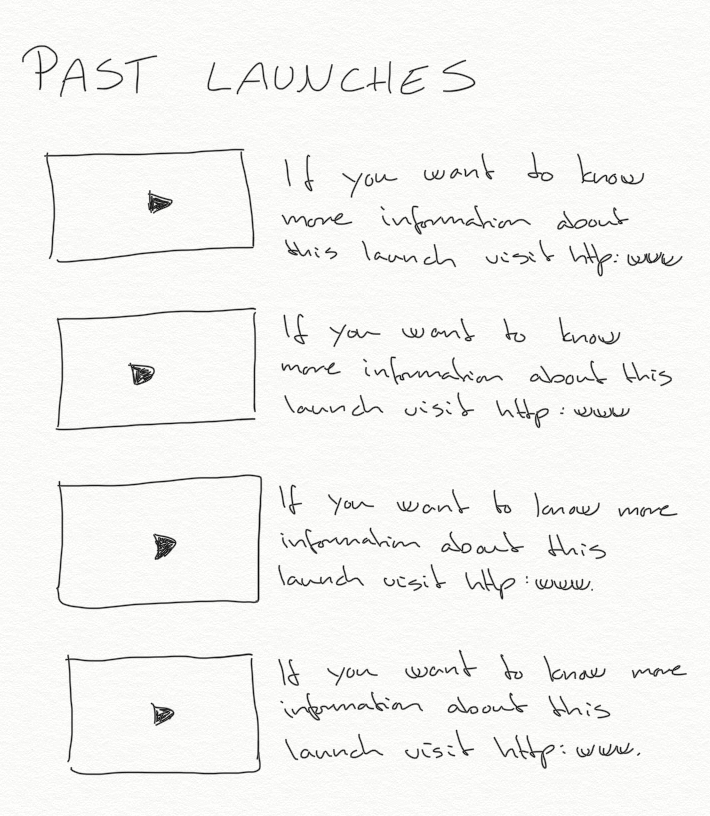 PAST LAUNCHES
If you want to know
more information about
this launch visit http:www
If you want to know
more information about this
launch visit http:www
If you want to know more
information about this
launch visit http:www.
If you want to know more
information about this
launch visit http:www.